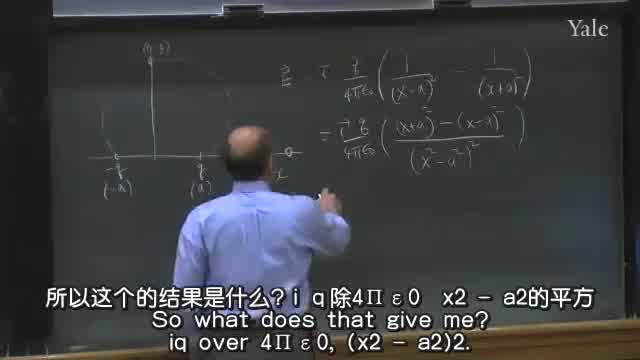 Yale
(0, y)
E = i q/4πε₀ (1/(x-a)² - 1/(x+a)²)
= i q/4πε₀ ((x+a)² - (x-a)²/(x²-a²)²)
-q q x
(-a) (a)
所以这个的结果是什么? i q除4Πε0 x2 - a2的平方
So what does that give me?
iq over 4Πε0, (x2 - a2)2.